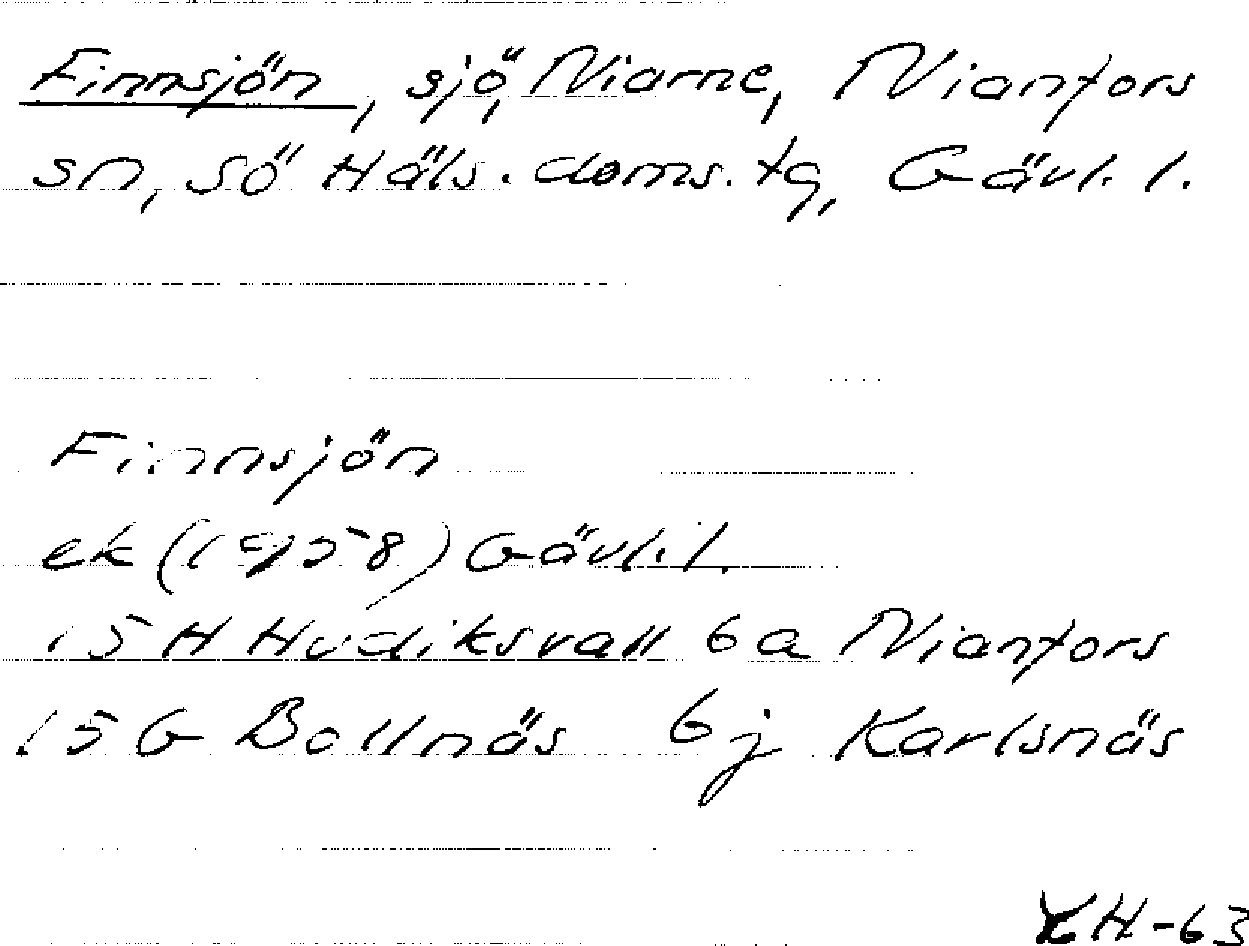 Finnsjön, sjö, Niarne, Nianfors
sn, Sö Häls. doms. tg, Gävl. l.
Finnsjön
ek (1958) Gävl. l.
15 H Hudiksvall 6a Nianfors
15 G Bollnäs 6j Karlsnäs
H-63